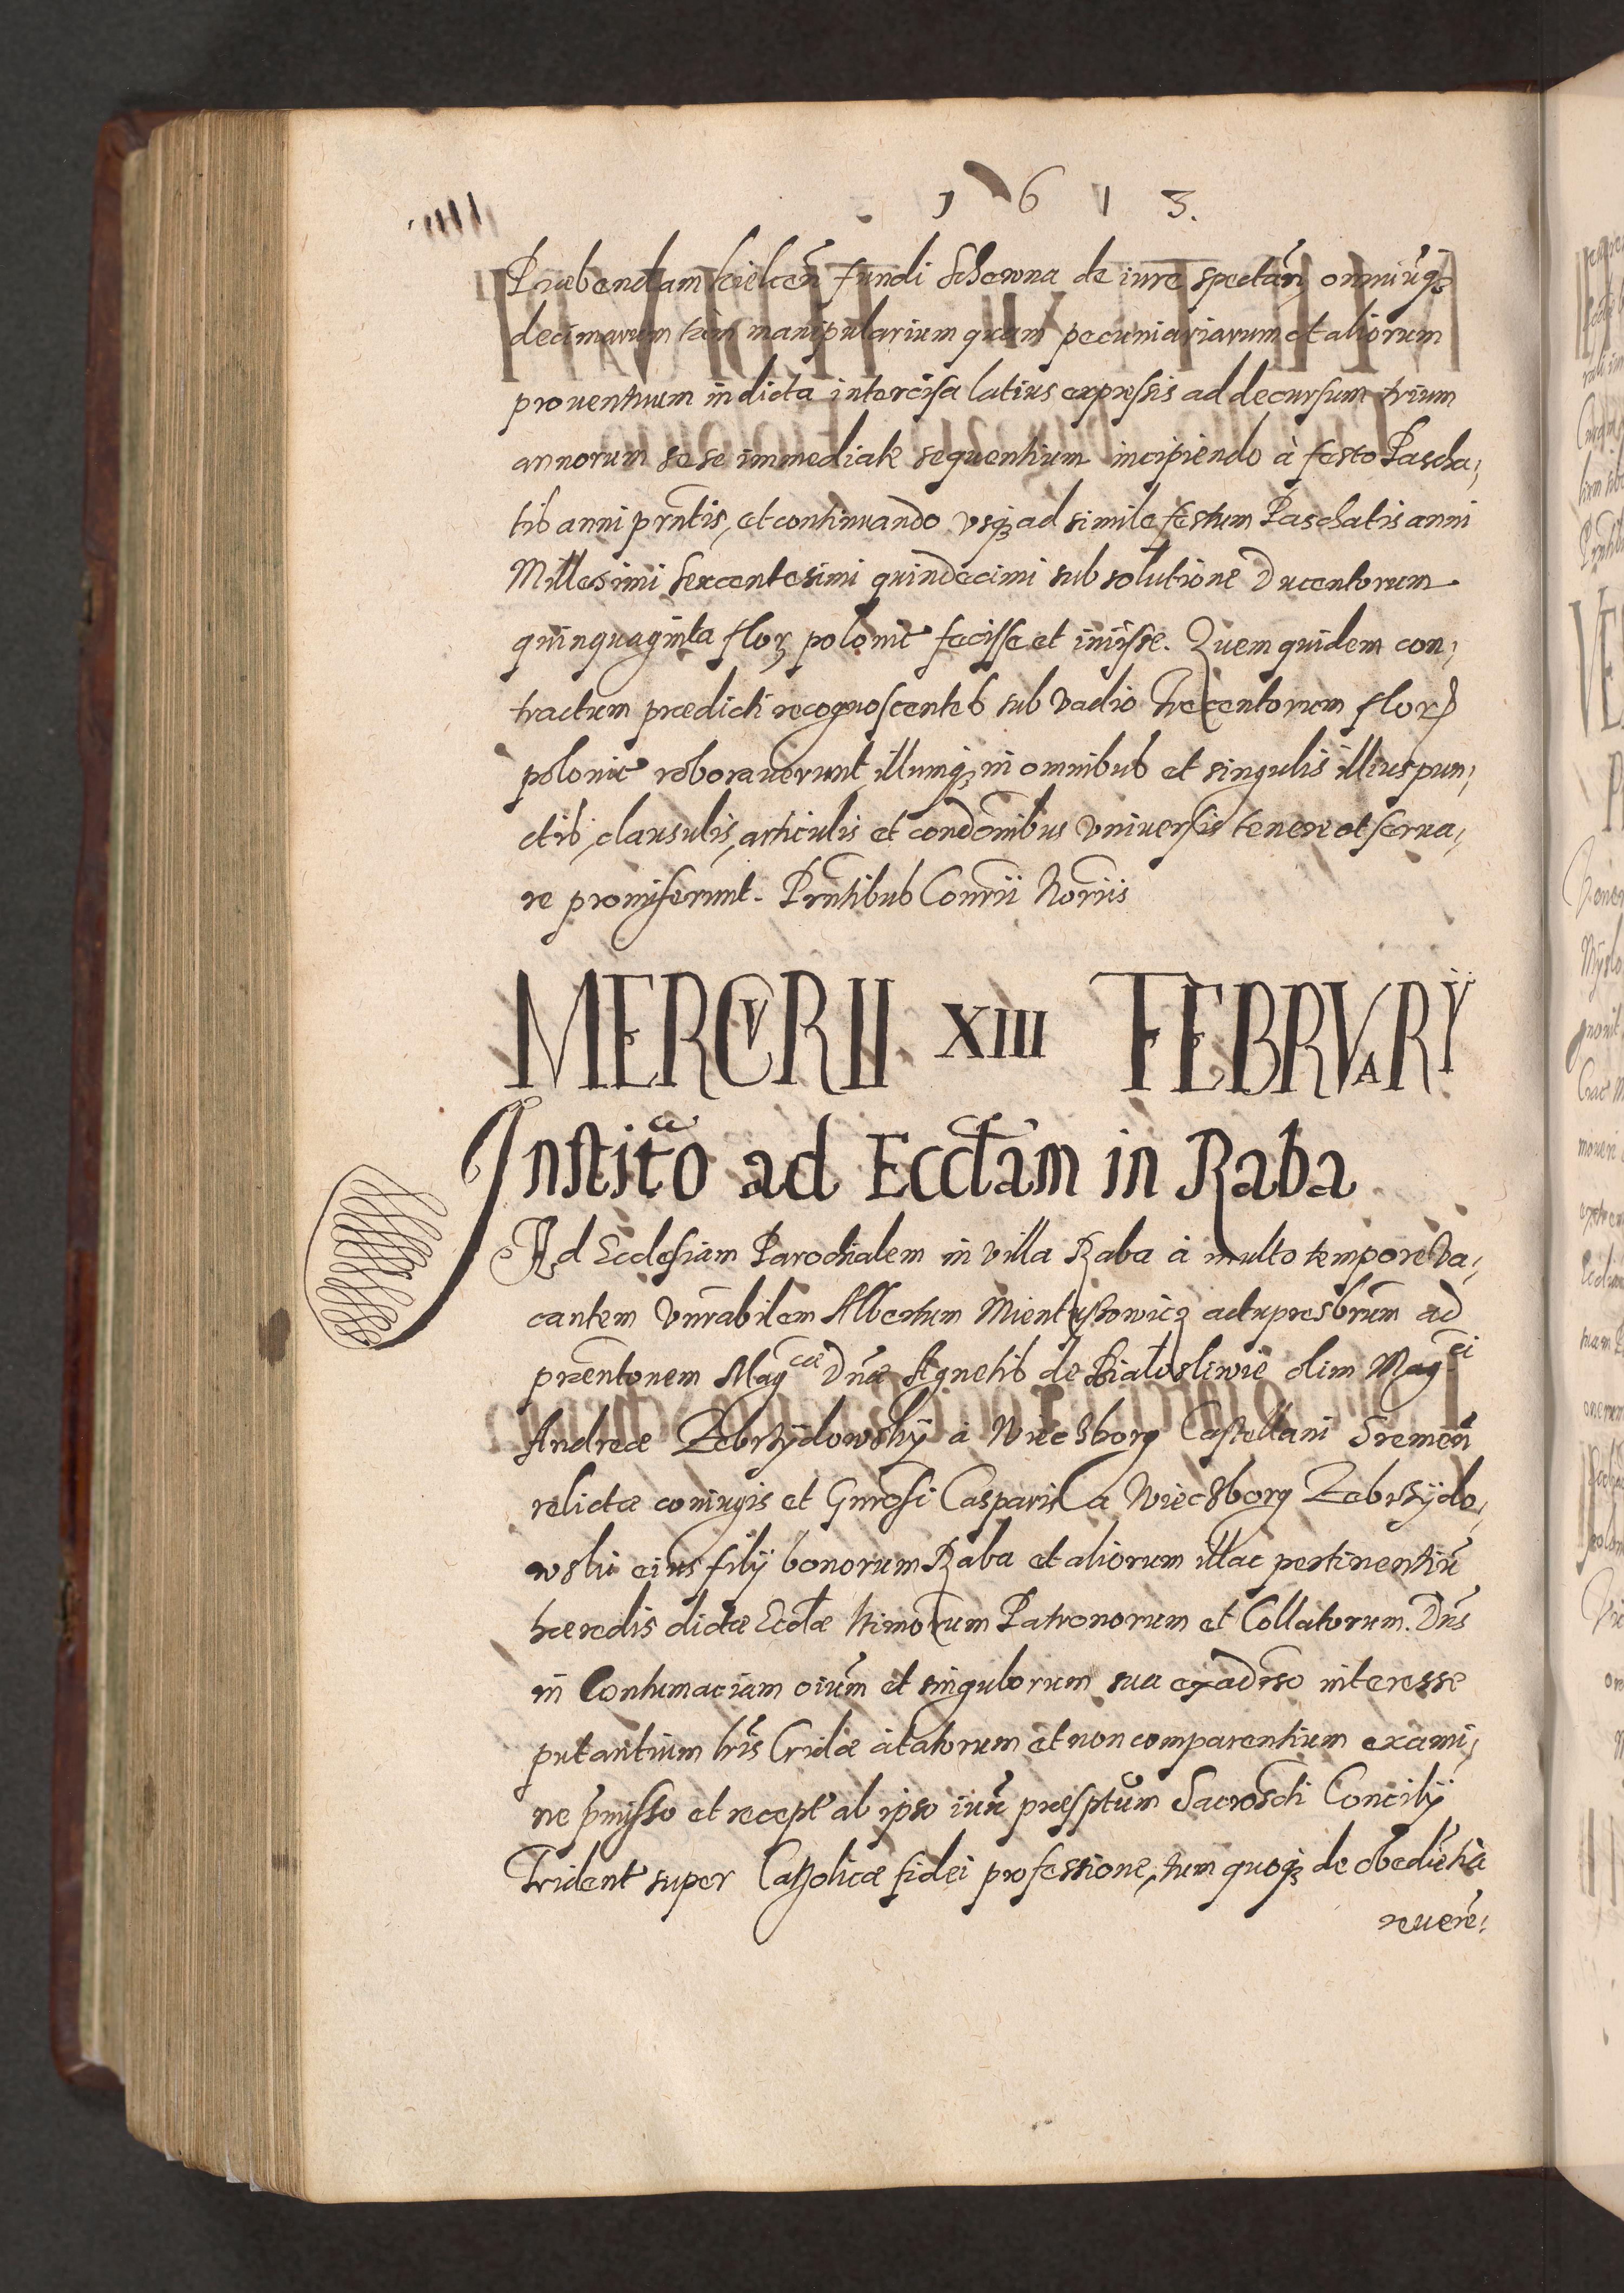 1613.
Præbendam Kielceñ fundi Schewna de iure spectañ, omniũq;
decimarum tam manipularium quam pecuniariarum et aliorum
prouentuum in dicta intercisa latius expressis ad decursum trium
annorum sese immediate sequentium incipiendo à festo Pascha,
tis anni prñtis, et continuando vsq; ad simile festum Paschatis anni
Millesimi Sexcentesimi quindecimi sub solutione Ducentorum
quinquaginta flor polonic fecisse et iniisse. Quem quidem con,
tractum prædicti recognoscentes sub vadio Trecentorum flor
polonic roborauerunt illumq; in omnibus et singulis illius pun,
ctis, clausulis, articulis et condonibus vniuersis tenere et serua,
re promiserunt. Prñtibus Comrii Noriis
MERCVRII XIII FEBRVARY
Institão ad Eccłam in Raba
Ad Ecclesiam Parochialem in villa Raba à multo tempore va,
cantem Vnrabilem Albertum Mientusowicz actu presbrum ad
præntonem Mag̃cae Dnæ Agnetis de Białosliwie olim Mag̃ci
Andreæ Zebrzydowsky à Wiecsborg Castellani Sremeñ
relictæ coniugis et Gnrosi Casparis a Wiecsborg Zebrzydo,
wski eius filij bonorum Raba et aliorum illac pertinentiũ
hæredis dictæ Eccłæ ltimorum Patronorum et Collatorum. Dñs
in Contumaciam oium et singulorum sua ex aduso interesse
putantium lris Cridæ citatorum et non comparentium exami,
ne p̃misso et recept ab ipso iuñ præsptum Sacroscti Concilij
Trident super Catholicæ fidei professione, tum quoq; de obediẽtia
reuerẽ,